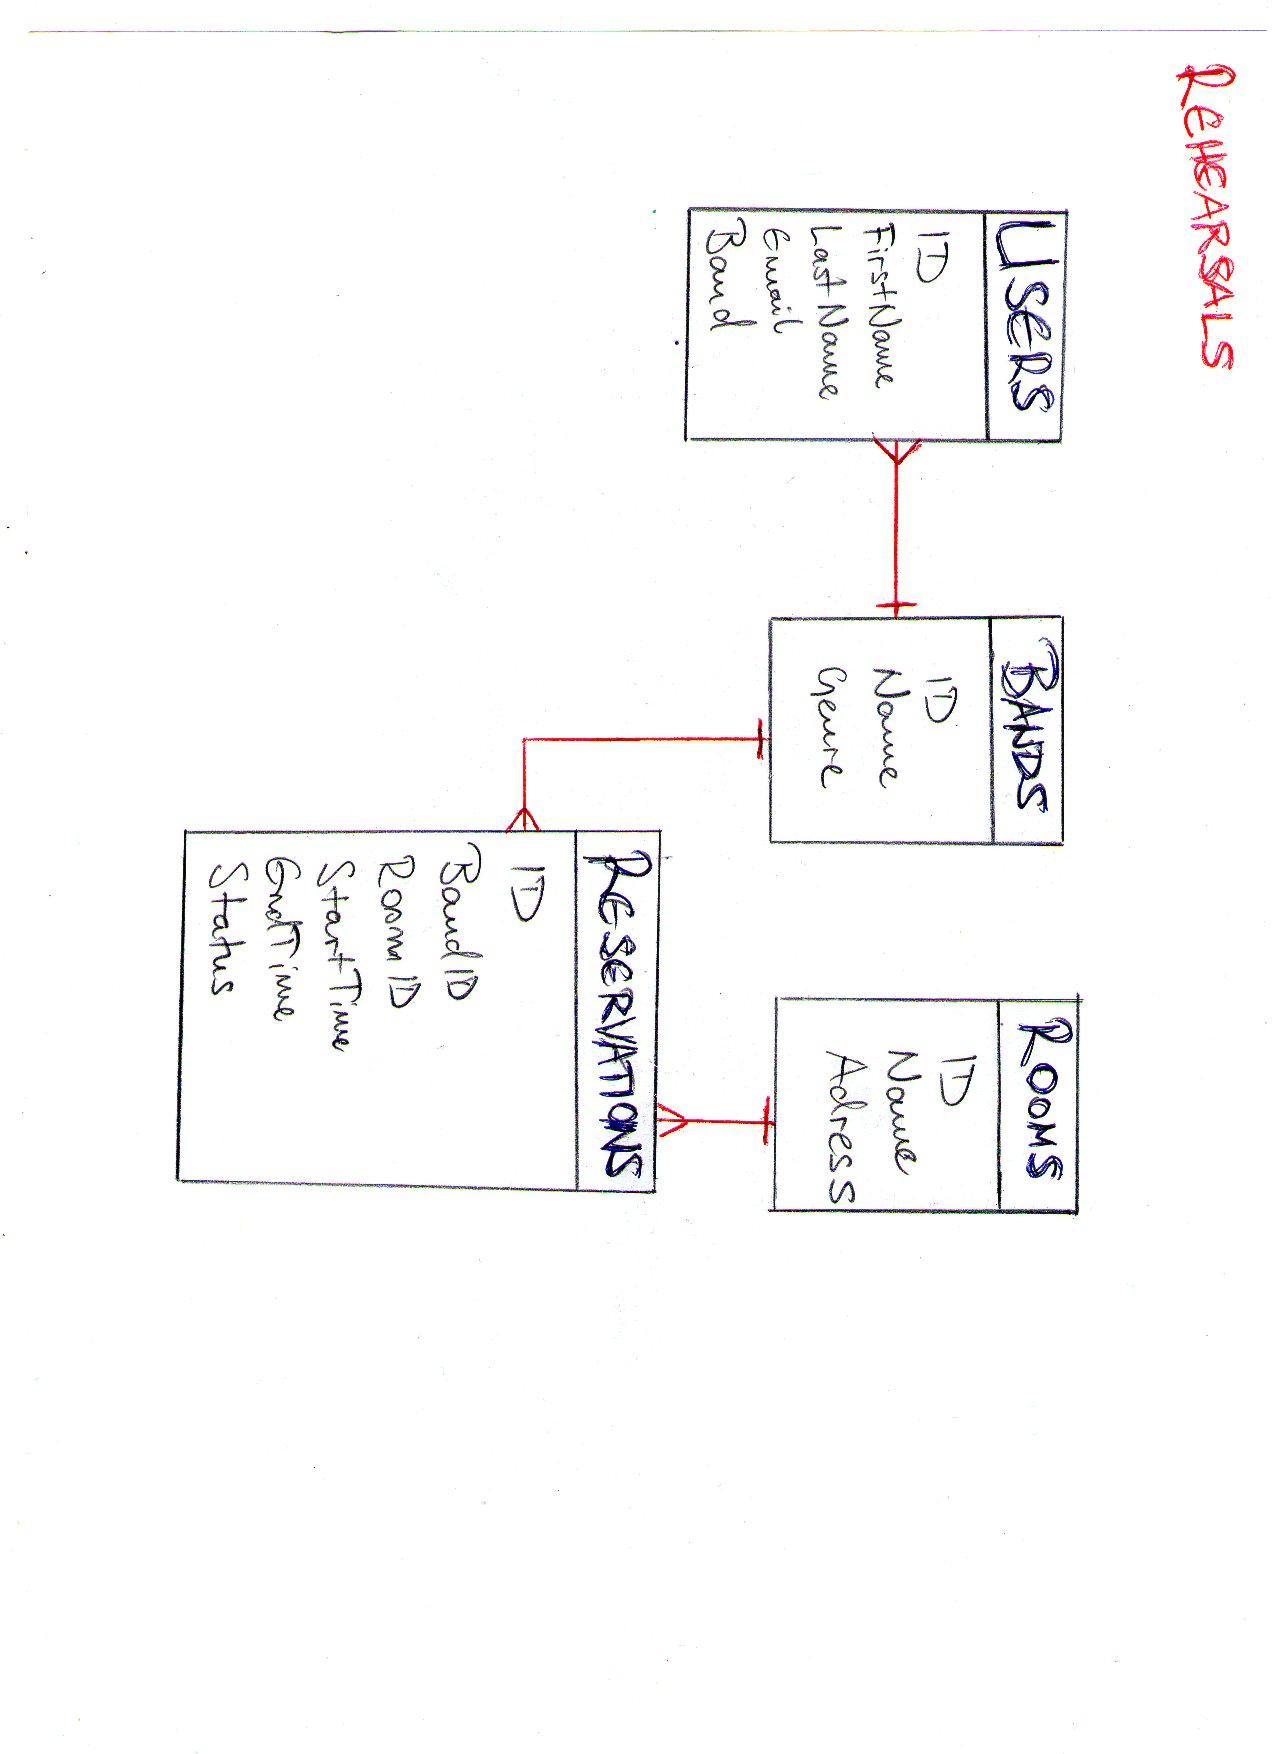 REHEARSALS
USERS
ID
FirstName
LastName
Email
Band
BANDS
ID
Name
Genre
ROOMS
ID
Name
Adress
RESERVATIONS
ID
BandID
RoomID
StartTime
EndTime
Status